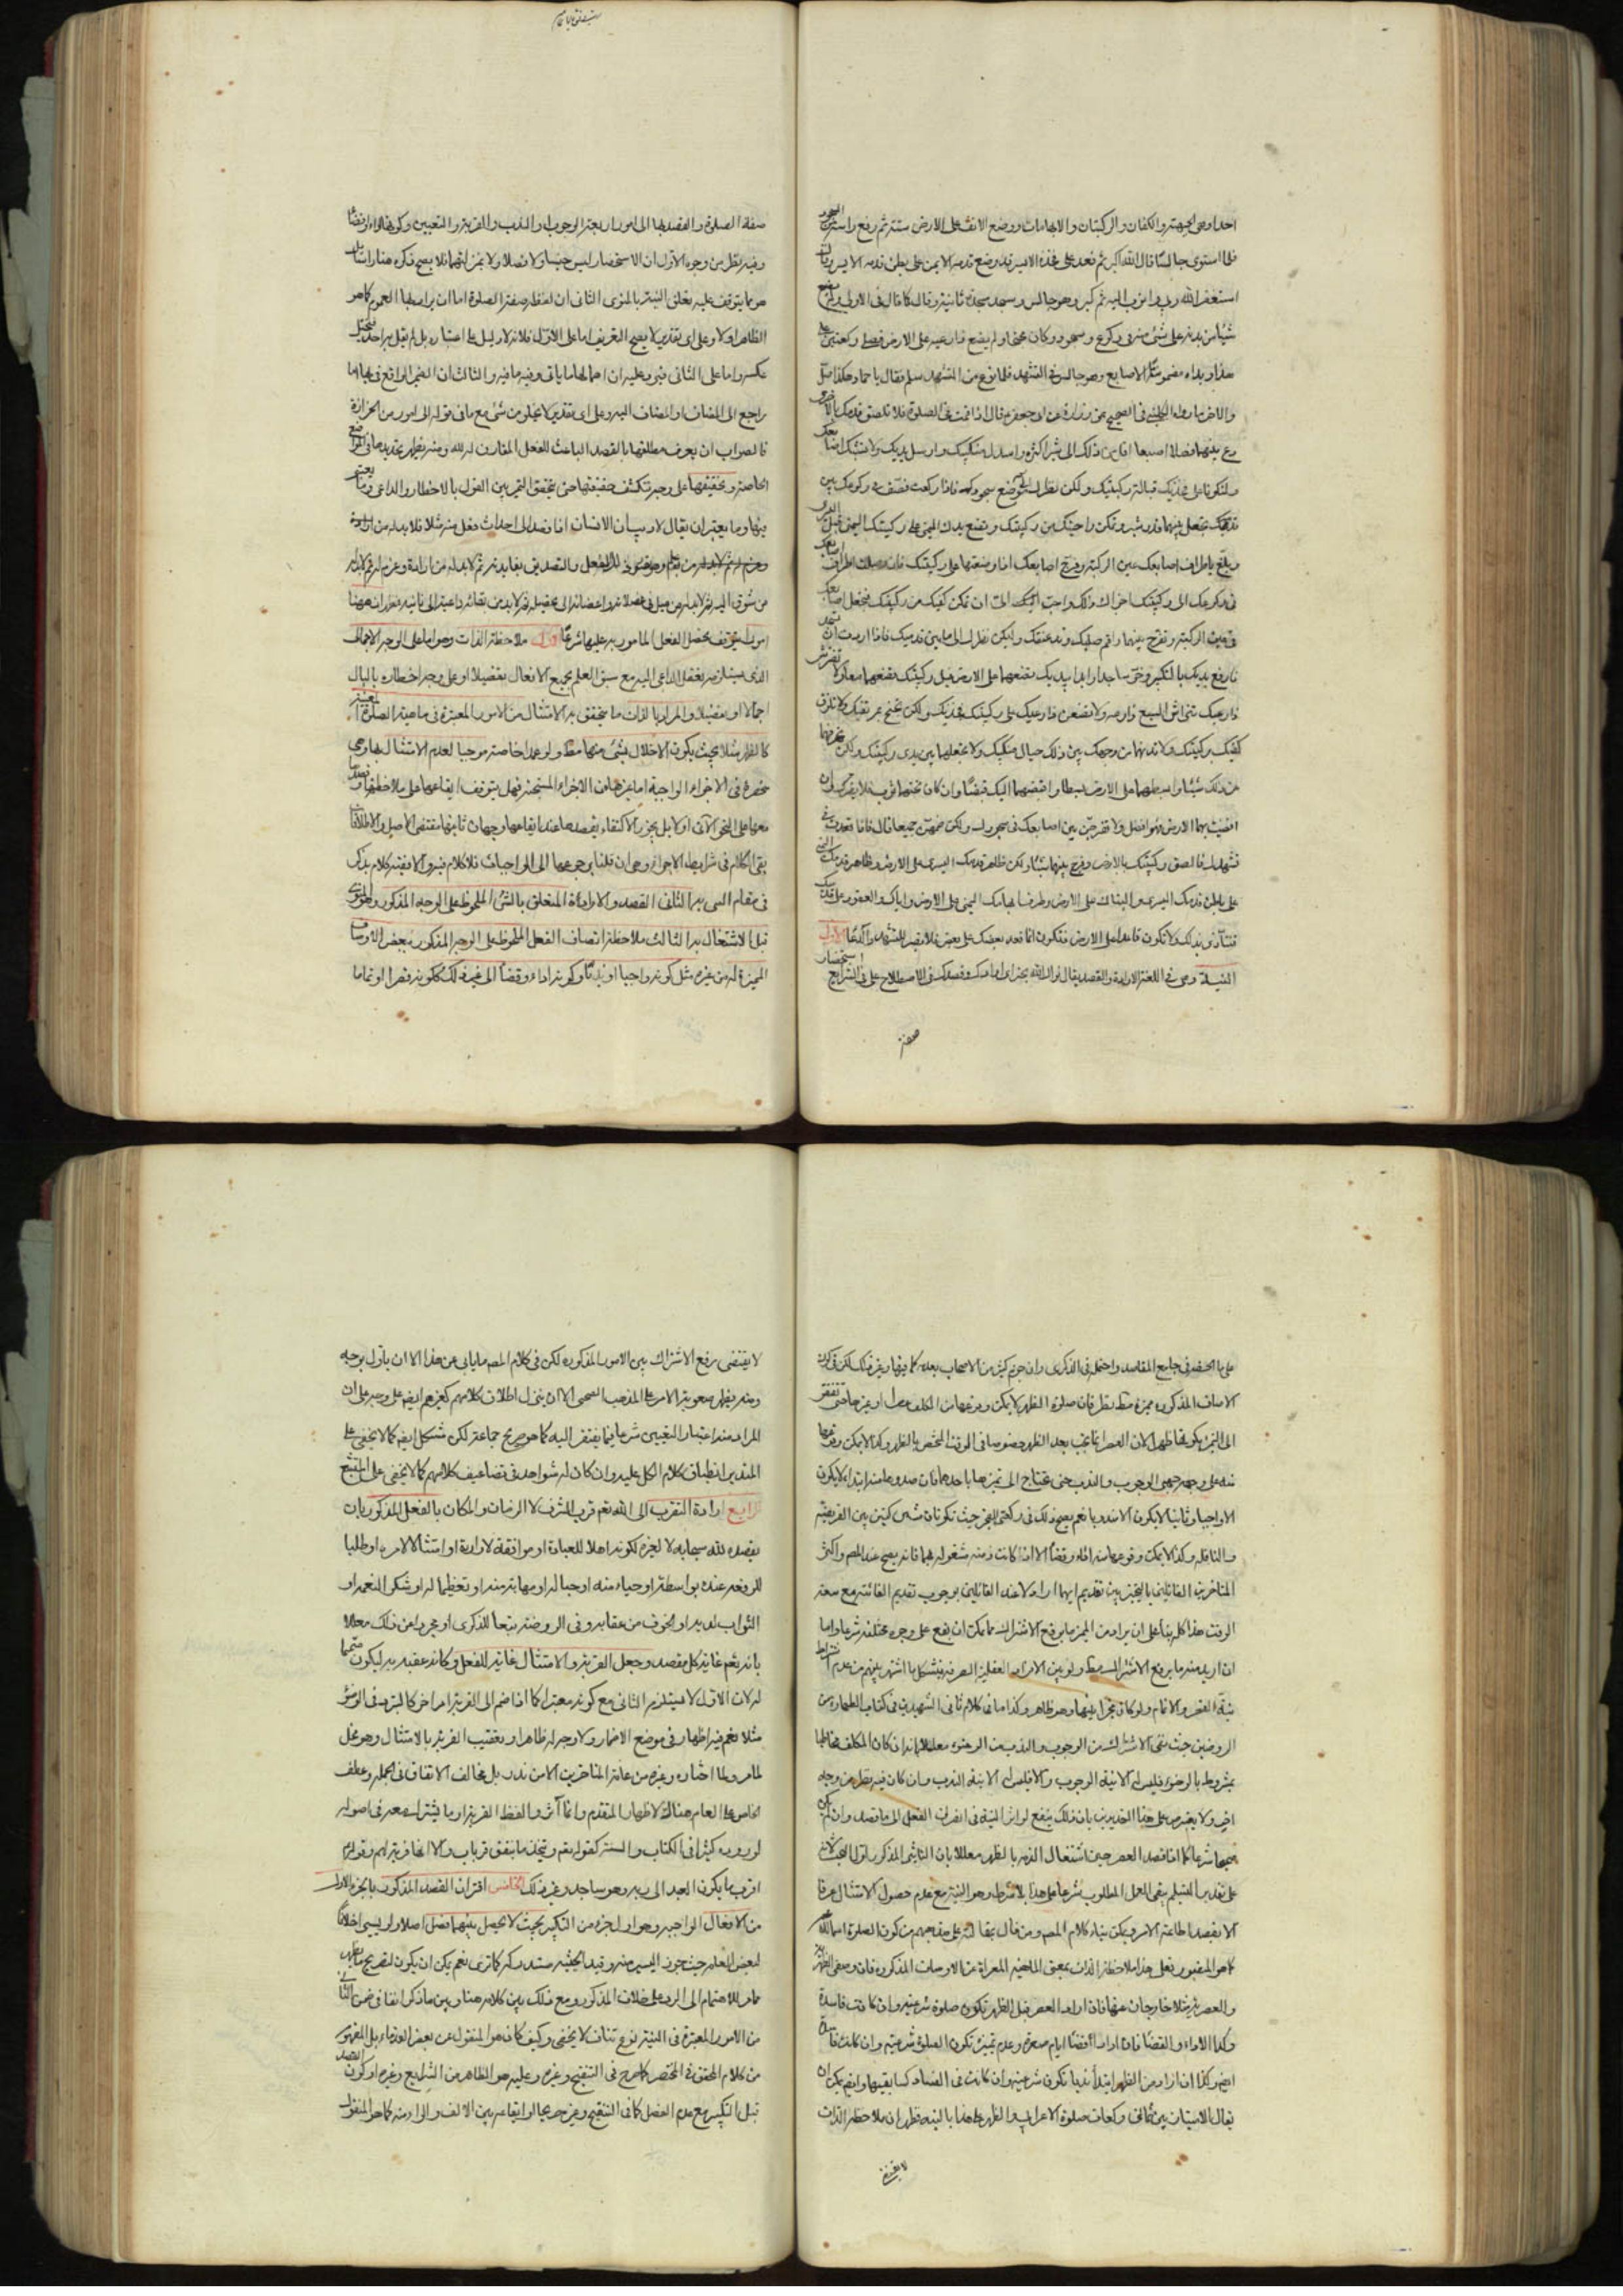 احداوهى الجبهة والكفان والركبتان والابهامان ووضع الانف على الارض سنة ثم رفع راسه من السجود
فلما استوى جالسا قال الله اكبر ثم قعد على فخذه الايسر قد وضع قدمه الايمن على بطن قدمه الايسر وقال
استغفر الله ربى واتوب اليه ثم كبر وهو جالس وسجد سجدة ثانية وقال كما قال فى الاولى ولم يضع
شيئا من بدنه على شئ منه فى ركوع وسجود وكان مجنحا ولم يضع ذراعيه على الارض فصلى ركعتين على
هذا ويداه مضمومتا الاصابع وهو جالس فى التشهد فلما فرغ من التشهد سلم فقال يا حماد هكذا صل
والاخر ما رواه الكلينى فى الصحيح عن زرارة عن ابى جعفر قال اذا قمت فى الصلوة فلا تلصق قدمك بالاخرى
دع بينهما فصلا اصبعا اقل من ذلك الى شبر اكثره واسدل منكبيك وارسل يديك ولا تشبك اصابعك
وليكونا على فخذيك قبالة ركبتيك وليكن نظرك الى موضع سجودك فاذا ركعت فصف فى ركوعك بين
قدميك تجعل بينهما قدر شبر وتمكن راحتيك من ركبتيك وتضع يدك اليمنى على ركبتك اليمنى قبل اليسرى
وبلغ باطراف اصابعك عين الركبة وفرج اصابعك اذا وضعتها على ركبتيك فان وصلت اطراف اصابعك
فى ركوعك الى ركبتيك اجزاك ذلك واحب الى ان تمكن كفيك من ركبتيك فتجعل اصابعك
فى عين الركبة وتفرج بينهما واقم صلبك ومد عنقك وليكن نظرك الى ما بين قدميك فاذا اردت ان تسجد
فارفع يديك بالتكبير وخر ساجدا وابدا بيديك تضعهما على الارض قبل ركبتيك تضعهما معا ولا تفترش
ذراعيك افتراش السبع ذراعيه ولا تضعن ذراعيك على ركبتيك وفخذيك ولكن تجنح بمرفقيك ولا تلزق
كفيك بركبتيك ولا تدنهما من وجهك بين ذلك حيال منكبيك ولا تجعلهما بين يدى ركبتيك ولكن تحرفهما
عن ذلك شيئا وابسطهما على الارض بسطا واقبضهما اليك قبضا وان كان تحتهما ثوب فلا يضرك وان
افضيت بهما الارض فهو افضل ولا تفرجن بين اصابعك فى سجودك ولكن ضمهن جميعا قال فاذا قعدت فى
تشهدك فالصق ركبتيك بالارض وفرج بينهما شيئا وليكن ظاهر قدمك اليسرى على الارض وظاهر قدمك اليمنى
على باطن قدمك اليسرى والبتاك على الارض وطرف ابهامك اليمنى على الارض واياك والقعود على قدميك
فتتأذى بذلك ولا تكون قاعدا على الارض فتكون انما قعد بعضك على بعض فلا تصبر للتشهد والدعا الاول
النية وهى فى اللغة الارادة والقصد يقال نواك الله بخير اى قصدك وفى الاصطلاح على فى الشرايع استحضار
صفة
صفة الصلوة والقصد بها الى امور اربعة الوجوب او الندب والقربة والتعيين وكونها اداء او قضاء
وفيه نظر من وجوه الاول ان الاستحضار ليس جنسا ولا فصلا ولا
هو مما يتوقف عليه تعلق النية بالمنوى الثانى ان لفظ صفة الصلوة اما ان يراد بها العموم كما هو
الظاهر او لا وعلى اى تقدير لا يصح التعريف اما على الاول فلانه لا دليل على اعتباره بل لم يقل به احد
عكسه واما على الثانى فيرد عليه ان اهمالها ما يأتى وفيه ما فيه والثالث ان الضمير الواقع فى بها اما
راجع الى المضاف او المضاف اليه وعلى اى تقدير لا يخلو من شئ مع ما فى قوله الى امور من الحزازة
فالصواب ان يعرف مطلقها بالقصد الباعث للفعل المقارن له لله ومنه يظهر تحديد
الخاصة وتحقيقها على وجه تنكشف حقيقتها حق يتحقق التميز بين القول بالاخطار والداعى وما يعتبر
فيها وما يعتبر ان يقال لا ريب ان الانسان اذا قصد الى احداث فعل منه مثلا فلا بد له من
والتصديق بفايدته ثم لا بد له من ارادة وعزم ثم لا بد له
من شوق اليه ثم لا بد له من ميل فى عضلاته واعضائه الى تحصيله
امور يتوقف تحصيل الفعل المامور به عليها شرعا الاول ملاحظة الذات وهو اما على الوجه الاجمالى
الذى يستلزمه تعقل الداعى اليه مع سبق العلم بجميع الافعال تفصيلا او على وجه اخطاره بالبال
اجمالا او تفصيلا والمراد بالذات ما يتحقق به الامتثال من الامور المعتبرة فى ماهية الصلوة المعينة
كالظهر مثلا بحيث يكون الاخلال بشئ منها مطلقا ولو عمدا خاصة موجبا لعدم الامتثال بها وهى
منحصرة فى الاجزاء الواجبة اما غيرها من الاجزاء المستحبة فهل يتوقف ايقاعها على ملاحظتها وقصدها
معها على النحو الآتى او لا بل يجوز الاكتفاء بقصدها عند ايقاعها وجهان ثانيهما مقتضى الاصل والاطلاقات
بقى الكلام فى شرايط الاجزاء وهى ان قلنا برجوعها الى الواجبات فلا كلام فيه والا ففيه كلام يذكر
فى مقام النسى به الثانى القصد والارادة المتعلق بالشئ الملحوظ على الوجه المذكور
قبل الاشتغال به الثالث ملاحظة اتصاف الفعل الملحوظ على الوجه المذكور ببعض الاوصاف
المميزة له عن غيره مثل كونه واجبا او ندبا وكونه اداء وقضاء الى غير ذلك ككونه قصرا او تماما
على ما اختفه فى جامع المقاصد واحتمل فى الذكرى وان جزم كثير من الاصحاب بعدمه
الاوصاف المذكورة مميزة مطلقا نظر فان صلوة الظهر لا يمكن وقوعها من المكلف او غيرها حتى تفتقر
الى التميز بكونها ظهرا لان العصر انما يجب بعد الظهر خصوصا فى الوقت المختص بالظهر وكذا لا يمكن وقوعها
منه على وجهى الوجوب والندب حتى تحتاج الى تميزها باحدهما فان صدورها منه ابتداء لا يكون
الا واجبا وثانيا لا يكون الا مندوبا نعم يصح ذلك فى ركعتى الفجر حيث تكونان مشتركتين بين الفريضة
والنافلة وكذا لا يمكن وقوعها منه اداء وقضاء الا اذا كانت ذمته مشغولة بهما فانه يصح عند المصـ واكثر
المتاخرين القائلين بالتخيير بين تقديم ايهما اراد لا عند القائلين بوجوب تقديم الفائتة مع سعة
الوقت هذا كله بناء على ان يراد من المميز ما يرفع الاشتراك مما يمكن ان يقع على وجوه مختلفة شرعا واما
ان اريد منه ما يرفع الاشتراك مطلقا ولو بين الافراد العقلية الصرفة فيشكل بما اشتهر بينهم من عدم اشتراط
نية القصر والاتمام ولو كان مخيرا بينهما وهو ظاهر وكذا ما فى كلام ثانى الشهيدين فى كتاب الطهارة من
الروضتين حيث نفى الاشتراك بين الوجوب والندب من الوضوء معللا بانه ان كان المكلف مخاطبا
بمشروط بالوضوء فليس له الا نية الوجوب والا فليس له الا نية الندب وان كان فيه نظر من وجه
اخر ولا يعترض على هذا التحديد بان ذلك ينفع لو اثر النية فى انصراف الفعل الى ما قصد وان لم يكن
صحيحا شرعا كما اذا قصد العصر حين اشتغال الذمة بالظهر معللا بان التاثير المذكور اول البحث لانه
على تقدير التسليم يبقى العمل المطلوب شرعا على هذا بلا شرط وهو النية مع عدم حصول الامتثال عرفا
الا بقصد اطاعة الامر ويمكن بناء كلام المصـ ومن قال بمقالته على مذهبهم من كون الصلوة اسما
كما هو المقصور فعلى هذا ملاحظة الذات بمعنى الماهية المعراة عن الاوصاف المذكورة فان وصفى الظهرية
والعصرية مثلا خارجان عنها فان اراد العصر قبل الظهر تكون صلوة شرعية وان كانت فاسدة
وكذا الاداء والقضاء فان اراد القضاء ايام صغره وعدم تميزه تكون الصلوة شرعية وان كانت فاسدة
ايضا وكذا ان اراد من الظهر ابتداء ندبا تكون شرعية وان كانت فى الفساد كسابقيها وايضا يمكن ان
يقال الاتيان بين ثمانى ركعات صلوة الاعرابى والظهر على هذا بالنية فظهر ان ملاحظة الذات
لا يقتضى
لا يقتضى رفع الاشتراك بين الامور المذكورة لكن فى كلام المصـ ما يابى عن هذا الا ان ياول بوجه
ومنه يظهر صعوبة الامر على المذهب الصحيحى الا ان ينزل اطلاق كلامهم كغيرهم ايضا على وجه على ان
المراد منه اعتبار التعيين شرعا فيما يفتقر اليه كما هو صريح جماعة لكن مشكل ايضا كما لا يخفى على
المتدبر انطباق كلام الكل عليه وان كان له شواهد فى تضاعيف كلامهم كما لا يخفى على المتتبع
الرابع ارادة التقرب الى الله تعم قرب الشرف لا الزمان والمكان بالفعل المذكور بان
يقصده لله سبحانه لا لغيره لكونه اهلا للعبادة او موافقة لارادته او امتثالا لامره او طلبا
للرفعة عنده بواسطته او حياء منه او حبا له او مهابة منه او تعظيما له او شكر النعمه او
الثواب لديه او الخوف من عقابه وفى الروضة تبعا للذكرى او مجردا عن ذلك معللا
بانه تعم غاية كل مقصد وجعل القربة والامتثال غاية للفعل وكانه عقبه به ليكون متمما
له لان الاول لا يستلزم الثانى مع كونه معتبرا كما اذا ضم الى القربة امرا اخر كالتبرد فى الوضوء
مثلا نعم فيه اظهار فى موضع الاضمار ولا وجه له ظاهرا وتعقيب القربة بالامتثال وهو مخل
لما مر ولما اختاره وغيره من عامة المتاخرين الا من ندر بل مخالف الاتفاق فى الجملة وعطف
الخاص على العام هنالك لاظهار المتقدم وانما آثر والفظ القربة او ما يشترك معه فى اصوله
لوروده كثيرا فى الكتاب والسنة كقوله تعم ويتخذ ما ينفق قربات والا انها قربة لهم وقوله
اقرب ما يكون العبد الى ربه وهو ساجد وغير ذلك الخامس اقتران القصد المذكور بالجزء الاول
من الافعال الواجبة وهو اول جزء من التكبير بحيث لا يحصل بينهما فصل اصلا ولو يسير اخلافا
لبعض العامة حيث جوز اليسير منه وقيد الحيثية مستدرك كما ترى نعم يمكن ان يكون لتصريح ما يظهر
مما مر للاهتمام الى الرد على خلاف المذكور ومع ذلك بين كلامه هنا وبين ما ذكر انفا فى
من الامور المعتبرة فى النية نوع تناف لا يخفى وكيف كان هو المنقول عن بعض القدماء بل المشهور
من كلام المحقق فى المختصر كما صرح فى التنقيح وغيره وعليه هو الظاهر من الشرايع وغيره او كون القصد
قبل التكبير مع عدم الفصل كما فى التنقيح وغيره صريحا او ايقاعه بين الالف والراء منه كما هو المنقول